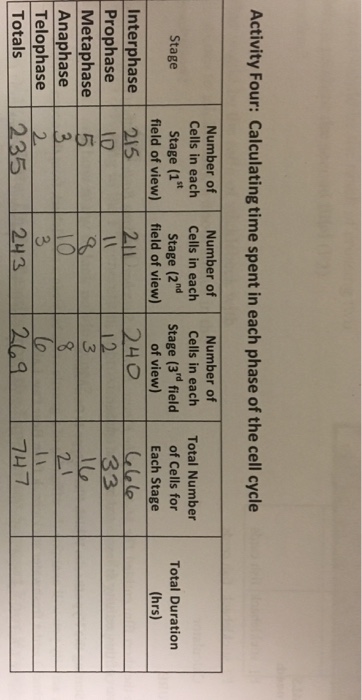 Activity Four: Calculating time spent in each phase of the cell cycle
Stage | Number of Cells in each Stage (1st field of view) | Number of Cells in each Stage (2nd field of view) | Number of Cells in each Stage (3rd field of view) | Total Number of Cells for Each Stage | Total Duration (hrs)
Interphase 215 211 240 666
Prophase 10 11 12 33
Metaphase 5 8 3 16
Anaphase 3 10 8 21
Telophase 2 3 6 11
Totals 235 243 269 747